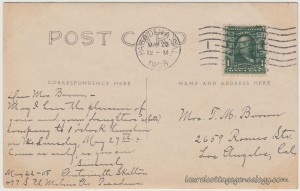 POST CARD
PASADENA, CAL.
MAY 22
12-M
1908
CORRESPONDENCE HERE
NAME AND ADDRESS HERE
Dear Mrs. Brown –
May I have the pleasure of
your and your daughter's
company to 1 o'clock luncheon
on Wednesday, May 27th?
Come as early as you can
Sincerely
May 22-08
Pasadena
Mrs. T. M. Brown
2659 Romeo Str.
Los Angeles, Cal
laurelcottagegenealogy.com